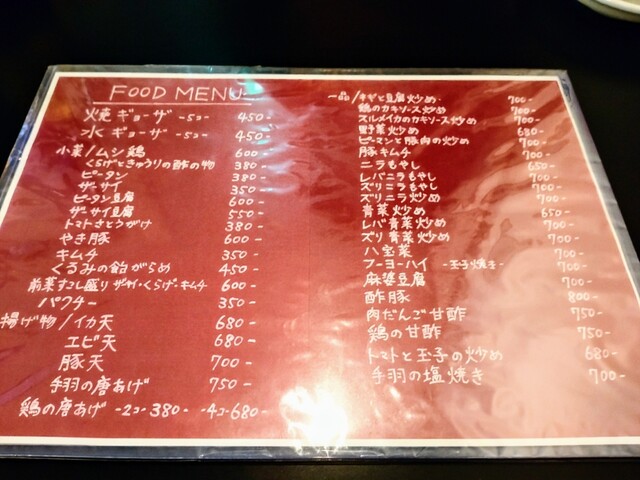 FOOD MENU
焼ギョーザ -5コ- 450-
水ギョーザ -5コ- 450-
小菜/ムシ鶏 600-
くらげときゅうりの酢の物 380-
ピータン 380-
ザーサイ 350-
ピータン豆腐 600-
ザーサイ豆腐 550-
トマトさとうがけ 380-
やき豚 600-
キムチ 350-
くるみの飴がらめ 450-
前菜すこし盛り ザサイ・くらげ・キムチ 600-
パクチー 350-
揚げ物/イカ天 680-
エビ天 680-
豚天 700-
手羽の唐あげ 750-
鶏の唐あげ -2コ- 380- -4コ- 680-
一品/ネギと豆腐炒め 700-
鶏のカキソース炒め 700-
スルメイカのカキソース炒め 700-
野菜炒め 680-
ピーマンと豚肉の炒め 700-
豚キムチ 700-
ニラもやし 650-
レバニラもやし 700-
ズリニラもやし 700-
ズリニラ炒め 700-
青菜炒め 650-
レバ青菜炒め 700-
ズリ青菜炒め 700-
八宝菜 700-
フーヨーハイ -玉子焼き- 700-
麻婆豆腐 700-
酢豚 800-
肉だんご甘酢 750-
鶏の甘酢 750-
トマトと玉子の炒め 680-
手羽の塩焼き 700-